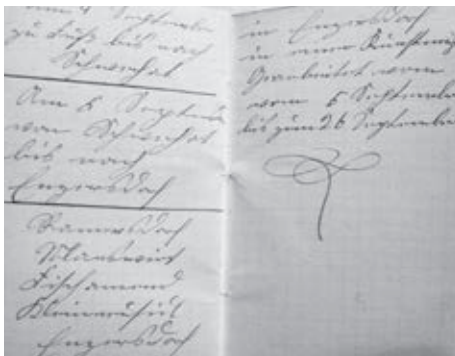 am 4 September
zu Fuß bis nach
Schwechat
Am 5 September
von Schwechat
bis nach
Enzersdorf
Rannersdorf
Manswört
Fischamend
Kleinneusiedl
Enzersdorf
in Enzersdorf
in einer
Gearbeitet vom
vom 6 September
bis zum 26 September